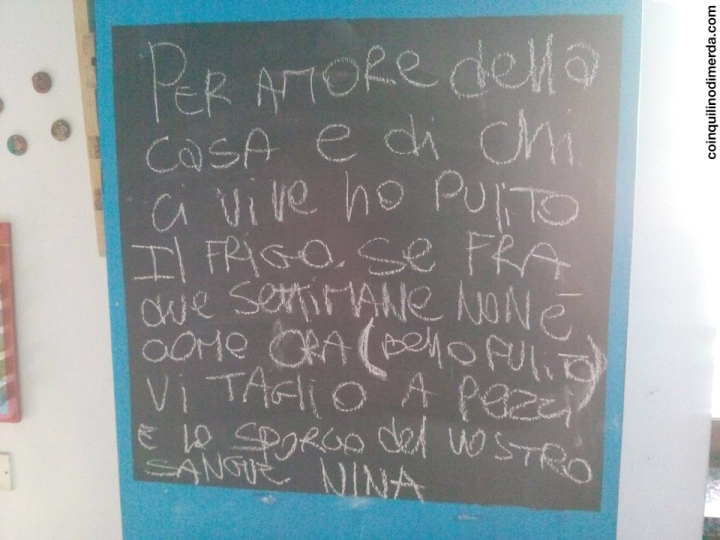 PER AMORE della
CASA e di chi
ci vive ho PULITO
Il FRIGO. Se FRA
due SETTIMANE NON È
COME ORA (Bello PULITO)
VI TAGLIO A PEZZI
E LO SPORCO del VOSTRO
SANGUE NINA
coinquilinodimerda.com